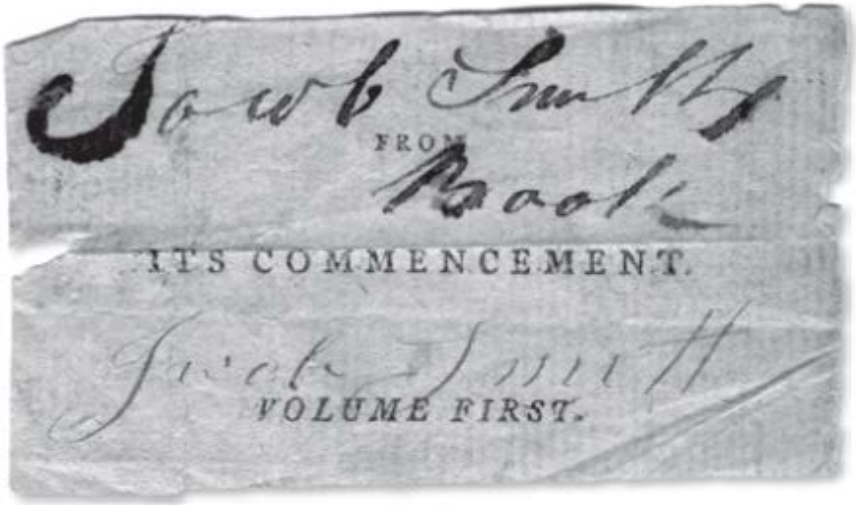 Jacob Smith
FROM
Book
ITS COMMENCEMENT.
Jacob Smith
VOLUME FIRST.